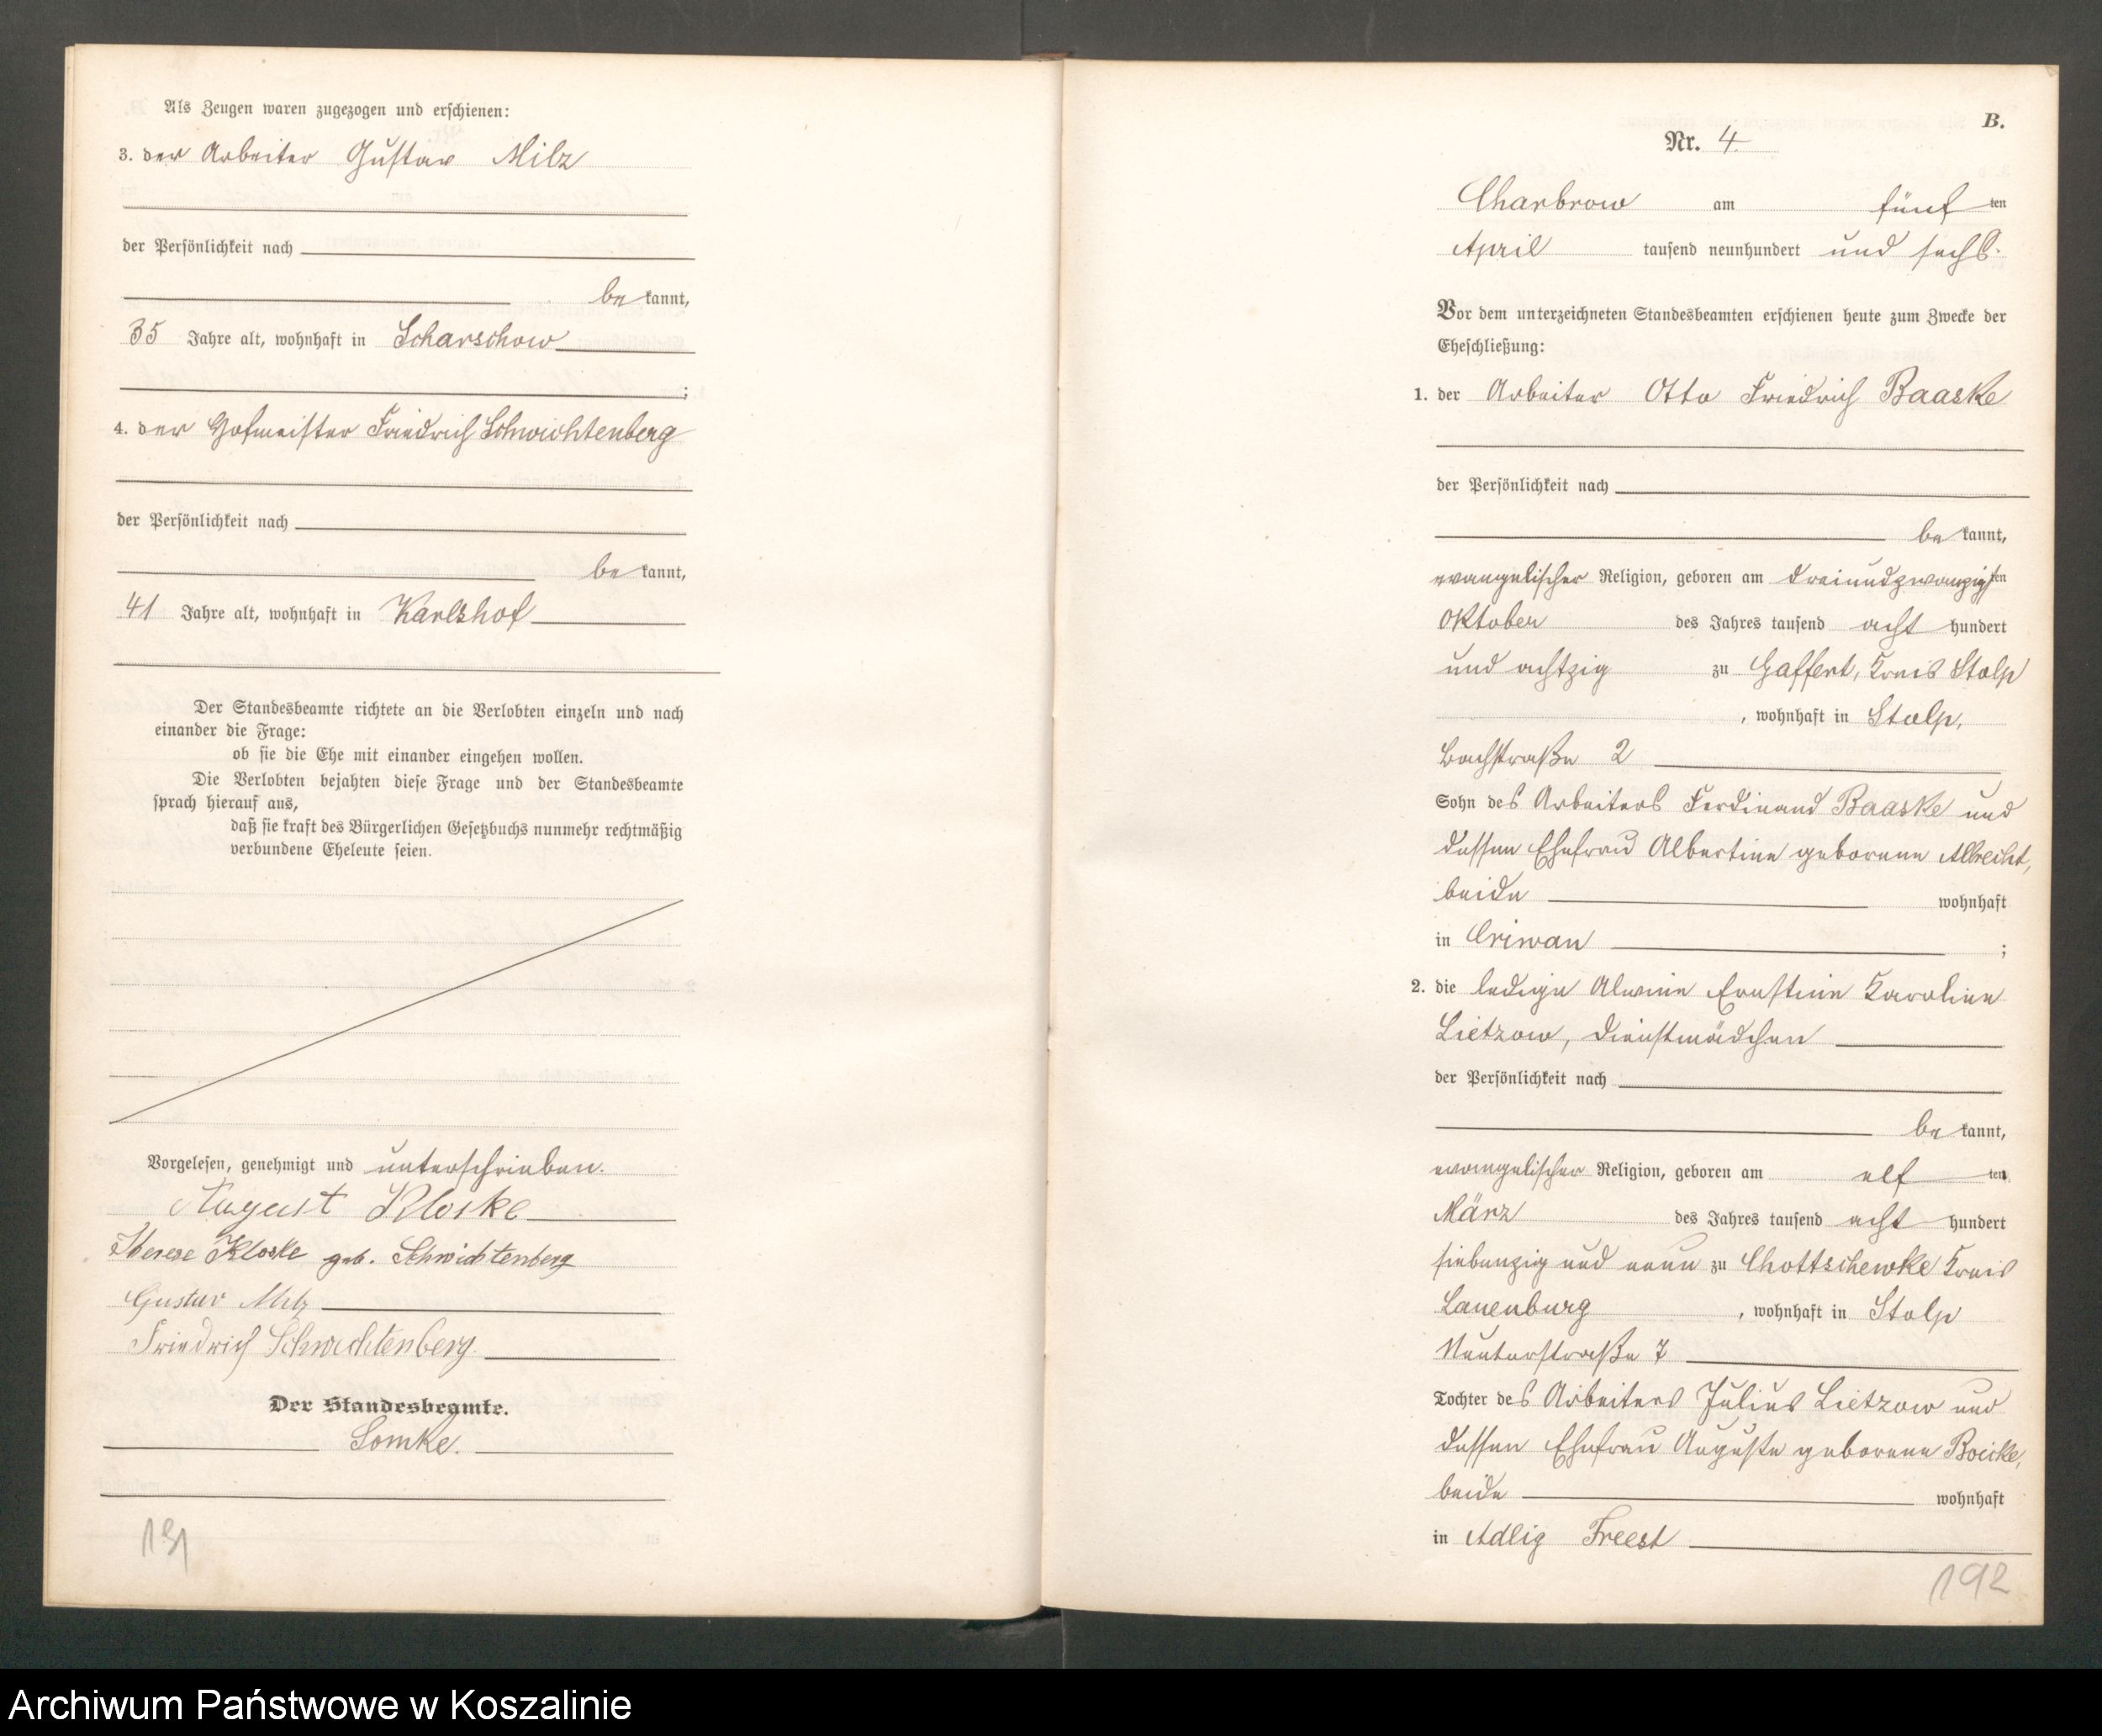 Als Zeugen waren zugezogen und erschienen:
3. der Arbeiter Gustav Milz
der Persönlichkeit nach
be kannt,
35 Jahre alt, wohnhaft in Scharschow
;
4. der Hofmeister Friedrich Schwichtenberg
der Persönlichkeit nach
be kannt,
41 Jahre alt, wohnhaft in Karlshof
Der Standesbeamte richtete an die Verlobten einzeln und nach
einander die Frage:
ob sie die Ehe mit einander eingehen wollen.
Die Verlobten bejahten diese Frage und der Standesbeamte
sprach hierauf aus,
daß sie kraft des Bürgerlichen Gesetzbuchs nunmehr rechtmäßig
verbundene Eheleute seien.
Vorgelesen, genehmigt und unterschrieben.
August Kloske
Therese Kloske geb. Schwichtenberg
Gustav Milz
Friedrich Schwichtenberg
Der Standesbeamte.
Lomke.
191
B.
Nr. 4.
Charbrow am fünf ten
April tausend neunhundert und sechs.
Vor dem unterzeichneten Standesbeamten erschienen heute zum Zwecke der
Eheschließung:
1. der Arbeiter Otto Friedrich Baaske
der Persönlichkeit nach
be kannt,
evangelischer Religion, geboren am dreiundzwanzigsten
Oktober des Jahres tausend acht hundert
und achtzig zu Gaffert, Kreis Stolp
, wohnhaft in Stolp,
Bachstraße 2
Sohn des Arbeiters Ferdinand Baaske und
dessen Ehefrau Albertine geborene Albrecht,
beide wohnhaft
in Criwan ;
2. die ledige Alwine Ernstine Karoline
Lietzow, Dienstmädchen
der Persönlichkeit nach
be kannt,
evangelischer Religion, geboren am elf ten
März des Jahres tausend acht hundert
siebenzig und neun zu Chottschewke Kreis
Lauenburg , wohnhaft in Stolp
7
Tochter des Arbeiters Julius Lietzow und
dessen Ehefrau Auguste geborene
beide wohnhaft
in Adlig Freest
192
Archiwum Państwowe w Koszalinie